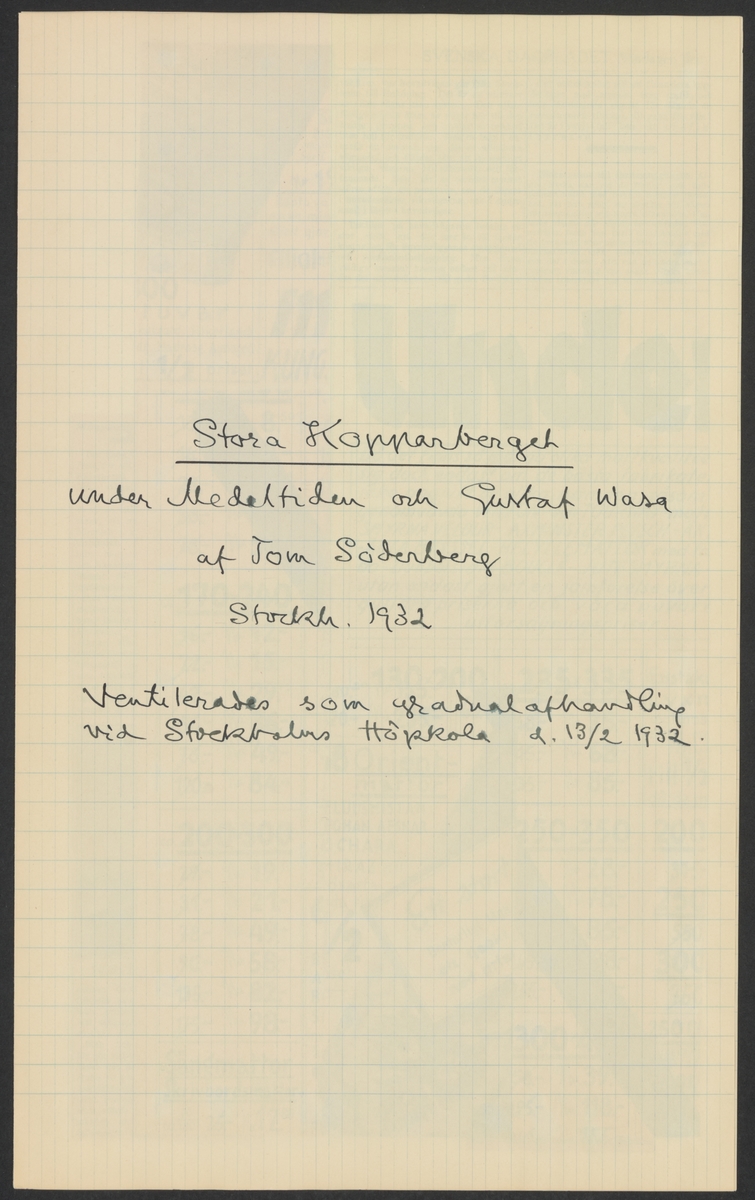 Stora Kopparberget
under Medeltiden och Gustaf Wasa
af Tom Söderberg
Stockh. 1932
Ventilerades som gradualafhandling
vid Stockholms Högskola d. 13/2 1932.